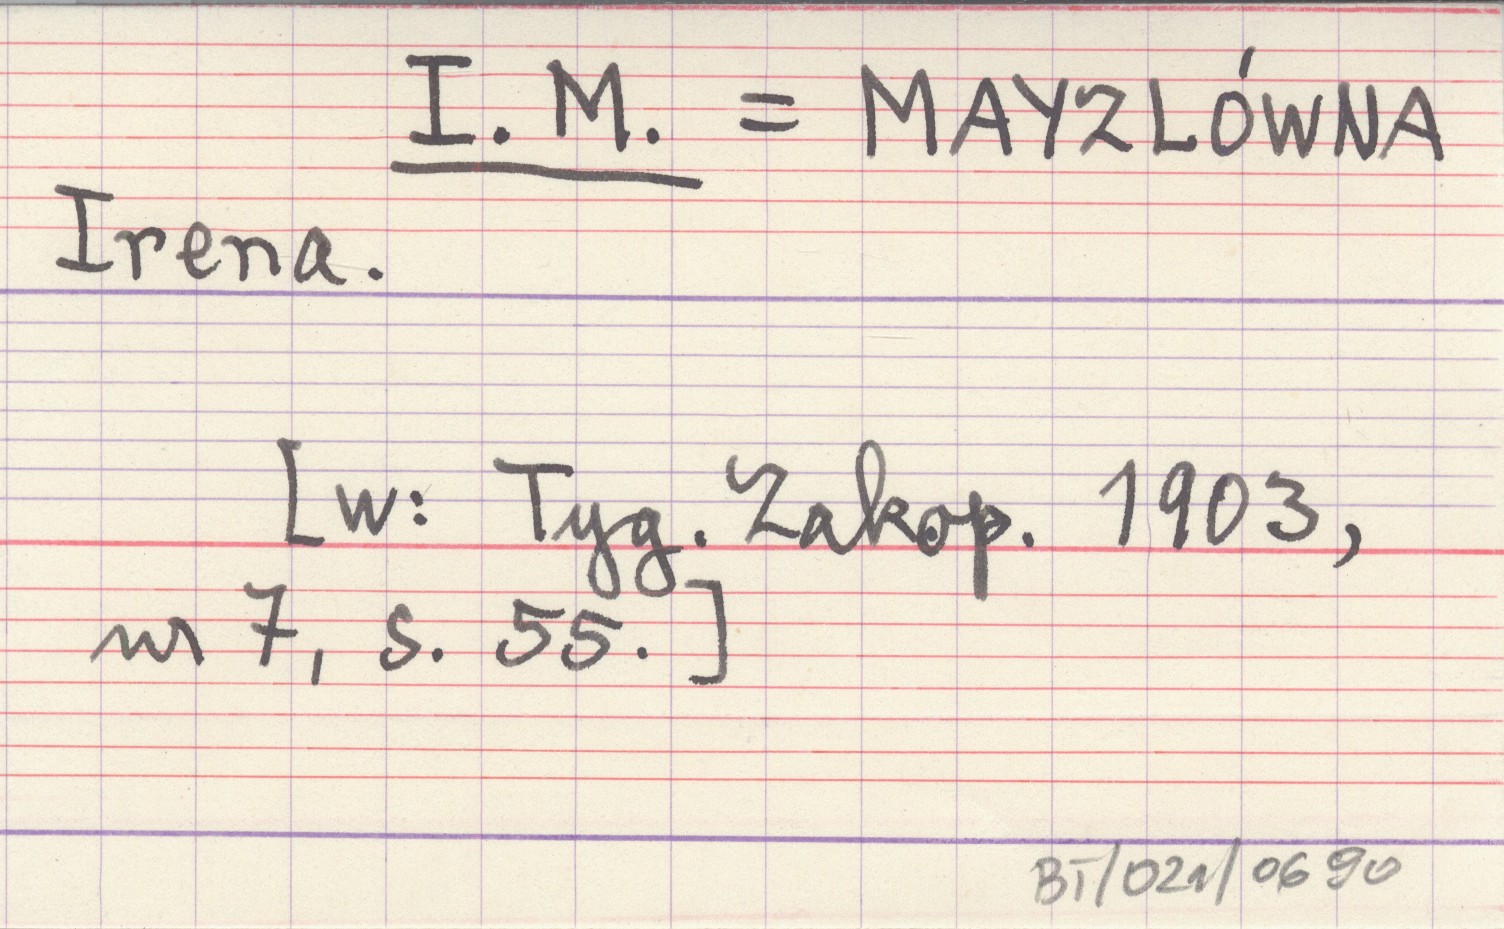 I. M. = MAYZLÓWNA
Irena.
[w: Tyg. Zakop. 1903,
nr 7, s. 55.]
BT/021/0690